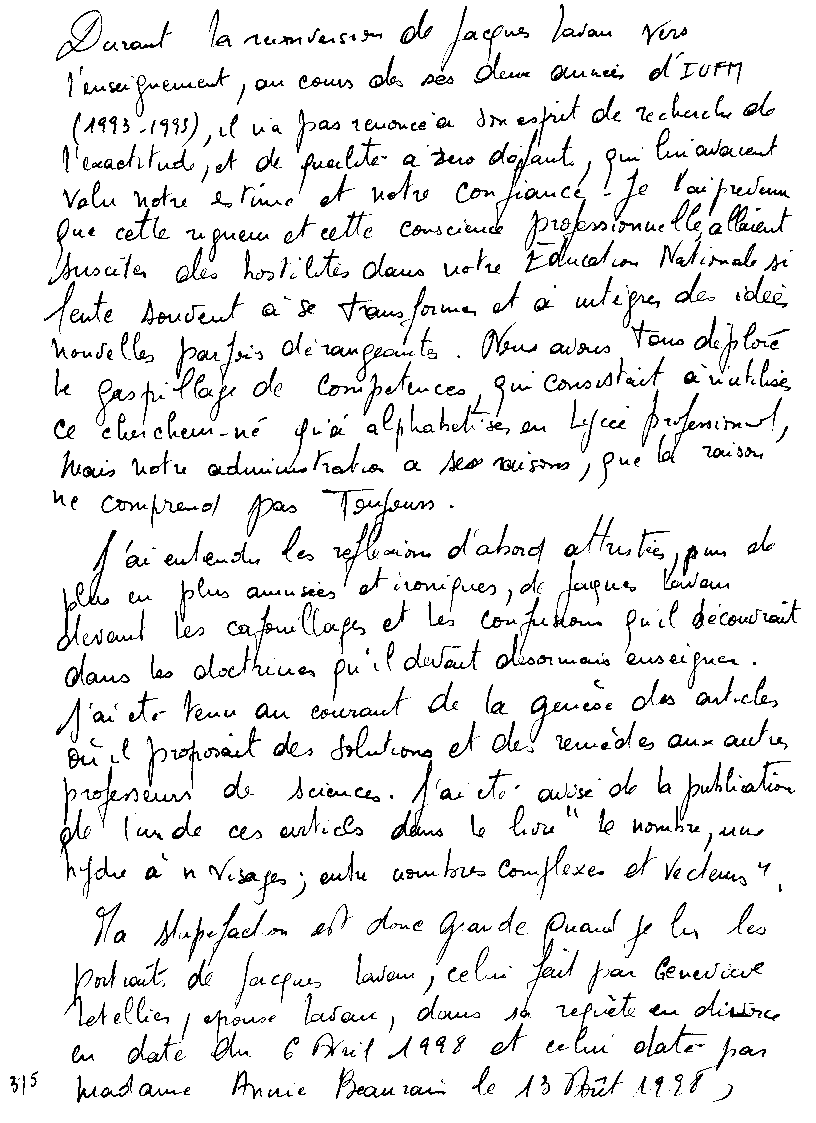 Durant la reconversion de Jacques Lavau vers
l'enseignement, au cours des ses deux années d'IUFM
(1993-1995), il n'a pas renoncé à son esprit de recherche de
l'exactitude, et de qualité à zéro défaut, qui lui avaient
valu notre estime et notre confiance. Je l'ai prévenu
que cette rigueur et cette conscience professionnelle allaient
susciter des hostilités dans notre Education Nationale si
lente souvent à se transformer et à intégrer des idées
nouvelles parfois dérangeantes. Nous avons tous déploré
le gaspillage de compétences, qui consistait à n'utiliser
ce chercheur-né qu'à alphabétiser en Lycée professionnel,
mais notre administration a ses raisons, que la raison
ne comprend pas Toujours.
J'ai entendu les réflexions d'abord attristées, puis de
plus en plus amusées et ironiques, de Jacques Lavau
devant les cafouillages et les confusions qu'il découvrait
dans les doctrines qu'il devait désormais enseigner.
J'ai été tenu au courant de la genèse des articles
où il proposait des solutions et des remèdes aux autres
professeurs de sciences. J'ai été avisé de la publication
de l'un de ces articles dans le livre "le nombre, une
hydre à n visages ; entre nombres complexes et vecteurs".
Ma stupéfaction est donc grande quand je lis les
portraits de Jacques Lavau, celui fait par Geneviève
Letellier, épouse Lavau, dans sa requête en divorce
en date du 6 Avril 1998 et celui daté par
madame Annie Beaurain le 13 Août 1998,
3/5